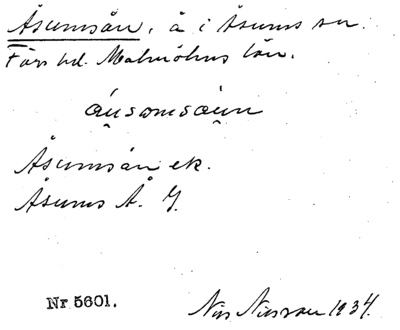 Åsumsån, å i Åsums sn.
Färs hd. Malmöhus län.
áu̯somsòu̯n
Åsumsån ek.
Åsums Å. G.
Nr 5601.
Nils Nilsson 1934.